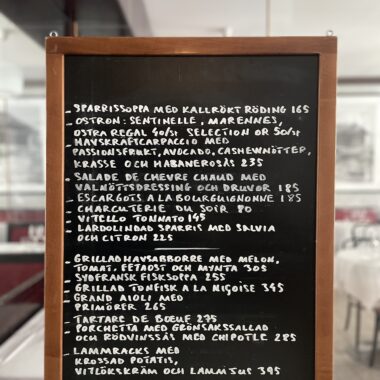 - SPARRISSOPPA MED KALLRÖKT RÖDING 165
- OSTRON: SENTINELLE, MARENNES,
OSTRA REGAL 40/st SELECTION OR 50/st
- HAVSKRÄFTCARPACCIO MED
PASSIONSFRUKT, AVOCADO, CASHEWNÖTTER,
KRASSE OCH HABANEROSÅS 235
- SALADE DE CHEVRE CHAUD MED
VALNÖTTSDRESSING OCH DRUVOR 185
- ESCARGOTS A LA BOURGUIGNONNE 185
- CHARCUTERIE DU SOIR 80
- VITELLO TONNATO 195
- LARDOLINDAD SPARRIS MED SALVIA
OCH CITRON 225
- GRILLAD HAVSABBORRE MED MELON,
TOMAT, FETAOST OCH MYNTA 305
- SYDFRANSK FISKSOPPA 255
- GRILLAD TONFISK A LA NIÇOISE 345
- GRAND AIOLI MED
PRIMÖRER 265
- TARTARE DE BOEUF 275
- PORCHETTA MED GRÖNSAKSSALLAD
OCH RÖDVINSSÅS MED CHIPOTLE 285
- LAMMRACKS MED
KROSSAD POTATIS,
VITLÖKSKRÄM OCH LAMMSJUS 395